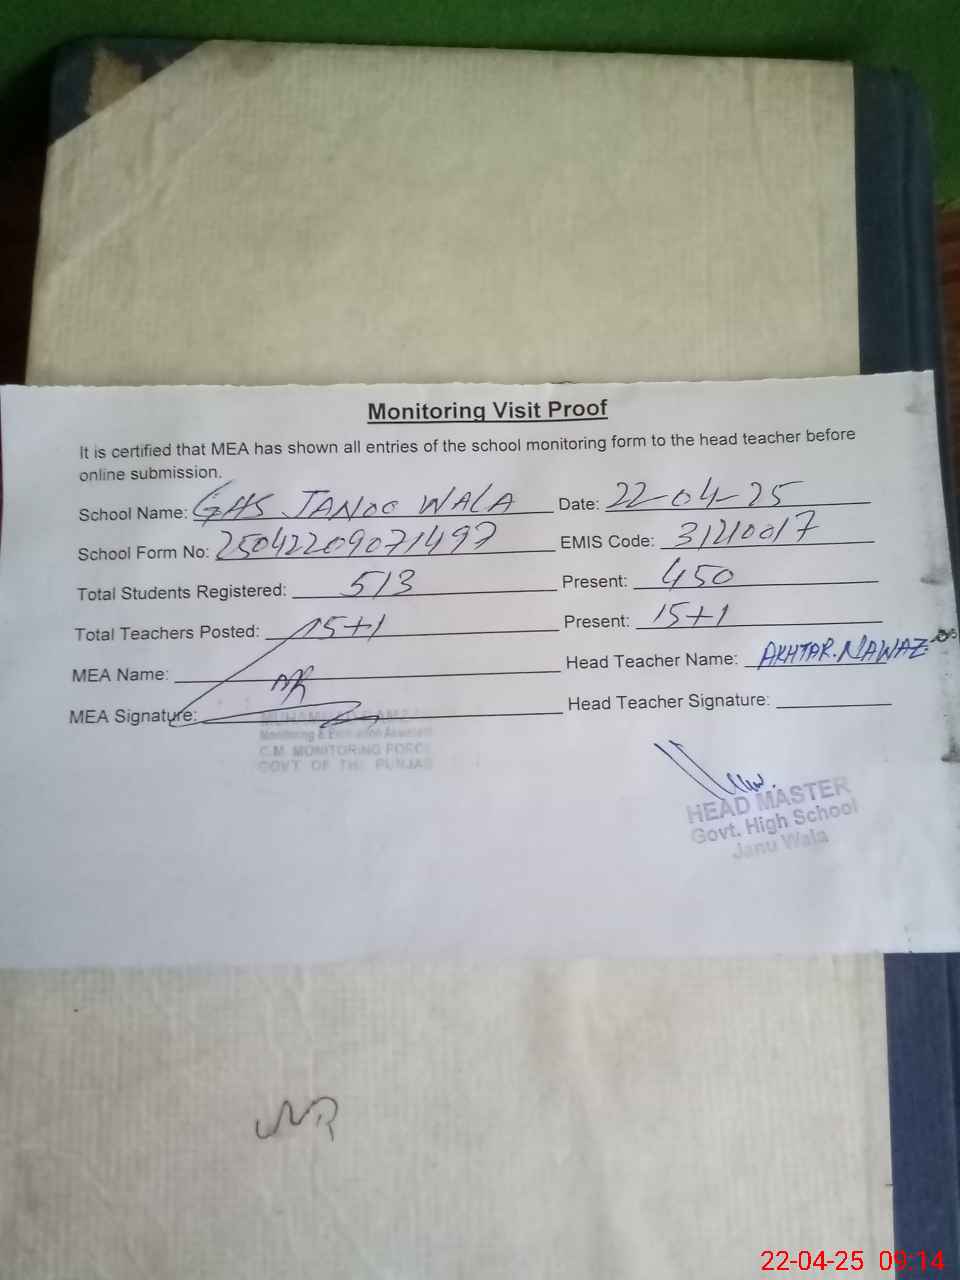 Monitoring Visit Proof
It is certified that MEA has shown all entries of the school monitoring form to the head teacher before
online submission.
School Name: GHS JANOO WALA Date: 22-04-25
School Form No: 25042209071497 EMIS Code: 31210017
Total Students Registered: 513 Present: 450
Total Teachers Posted: 15+1 Present: 15+1
MEA Name: Head Teacher Name: AKHTAR.NAWAZ
MEA Signature: Head Teacher Signature:
MUHAMMAD
Monitoring & Evaluation Assistant
C.M. MONITORING FORCE
GOVT. OF THE PUNJAB
HEAD MASTER
Govt. High School
Janu Wala
22-04-25 09:14